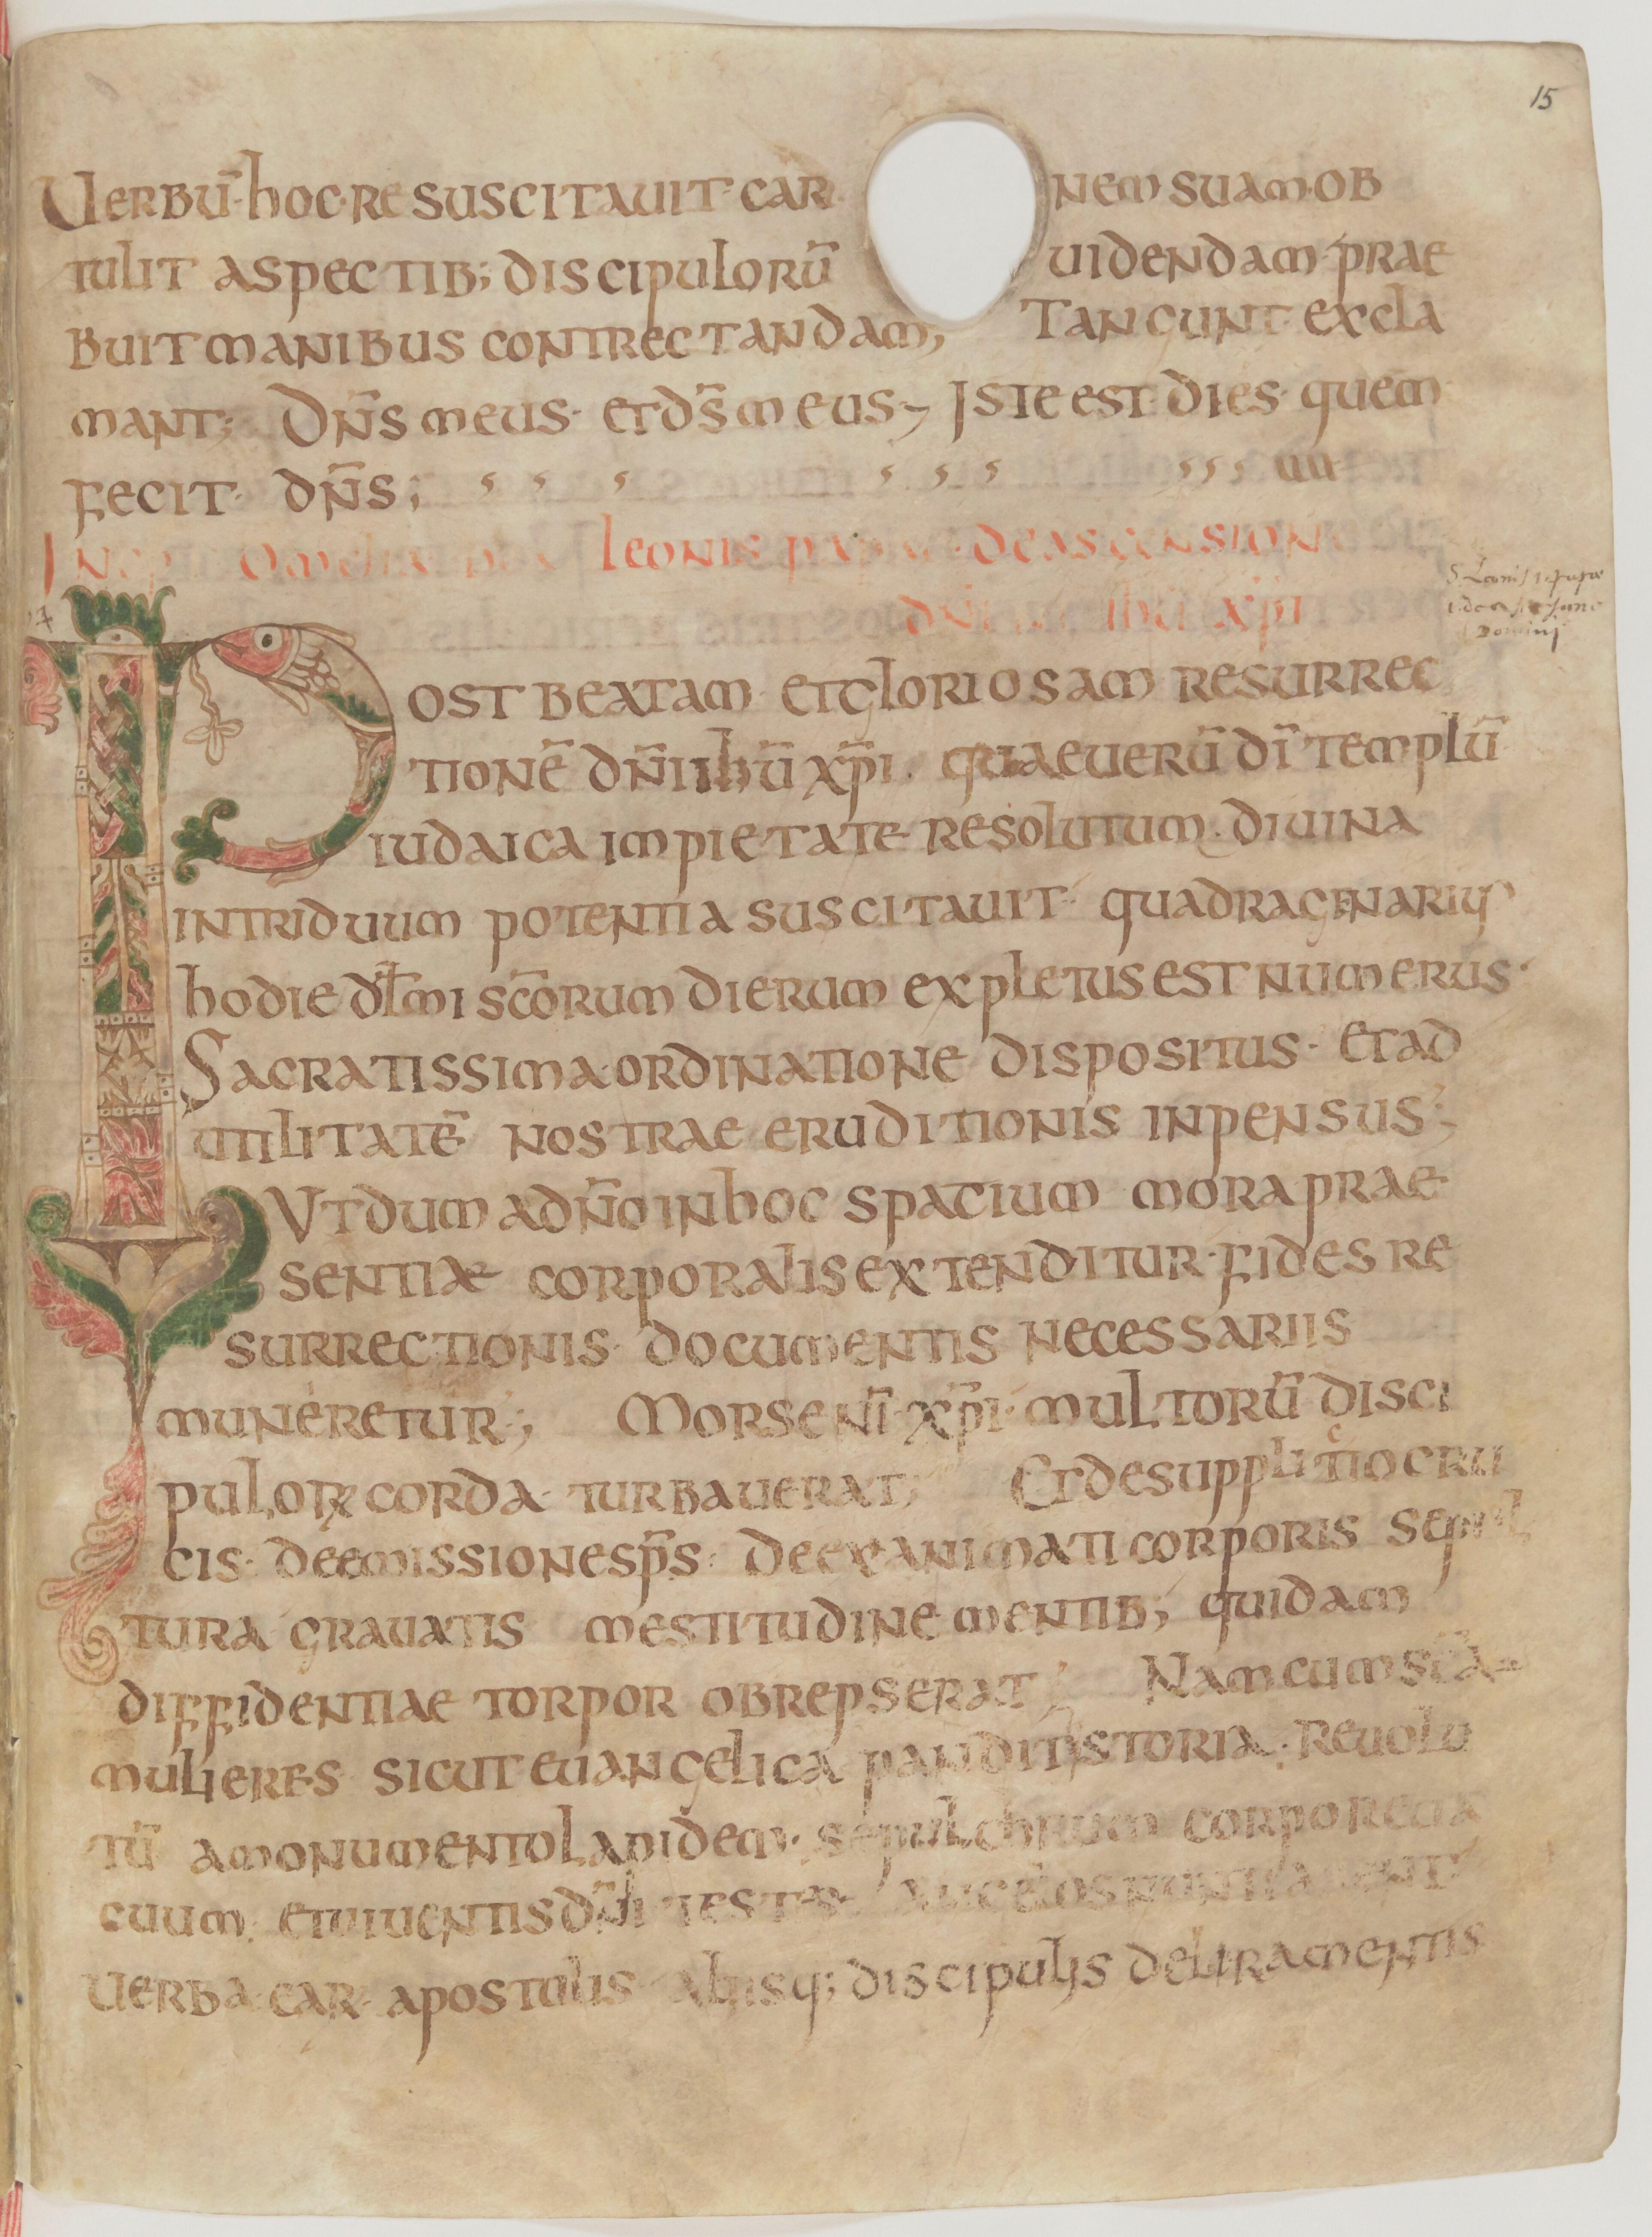 15
Uerbū·hoc·resuscitauit·car nem suam·ob
tulit aspectib; discipulorū uidendam·prae
buit manibus contrectandam, Tangunt·excla
mant; Dn̄s meus· et ds̄ meus; Iste est·dies·quem
fecit· dn̄s;
Leonis papae· de ascension
dn̄i ihū xp̄i
Post beatam· et gloriosam resurrec
tionē dn̄i ihū xp̄i. quae uerū dī templū
iudaica impietate resolutum. diuina
in triduum potentia suscitauit· quadragenarius
hodie dl̄mi sc̄orum dierum expletus est numerus·
Sacratissima·ordinatione dispositus· et ad
utilitatē nostrae eruditionis inpensus;
Ut dum a dn̄o in hoc spatium mora prae
sentiae corporalis extenditur·fides re
surrectionis· documentis necessariis
muneretur; Mors enī·xp̄i·multorū disci
pulorꝝ corda· turbauerat; Et de supplicio cru
cis· de emissione sp̄s· de exanimati corporis sepul
tura grauatis mestitudine mentib; quidam
diffidentiae torpor obrepserat; Nam cum sc̄a
mulieres sicut euangelica pandit istoria· reuolu
tū a monumento lapidem· sepulchrum corpore ua
cuum· et uiuentis dn̄i testes angelos nuntiarent
uerba ear· apostolis aliisq; discipulis deliramentis